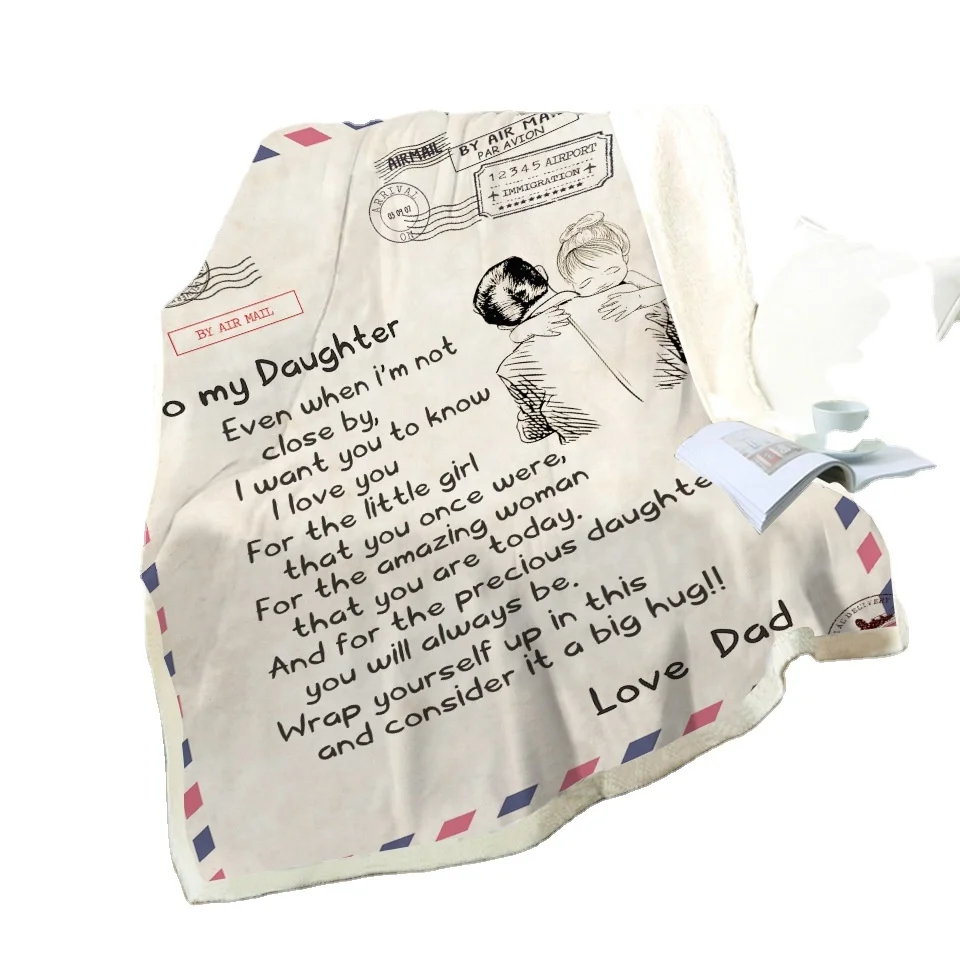 AIRMAIL
BY AIR MA
PAR AVION
12345 AIRPORT
IMMIGRATION
ARRIVAL
BY AIR MAIL
o my Daughter
Even when i'm not
close by,
I want you to know
I love you
For the little girl
that you once were,
For the amazing woman
that you are today.
And for the precious daughte
you will always be.
Wrap yourself up in this
and consider it a big hug!!
Love Dad